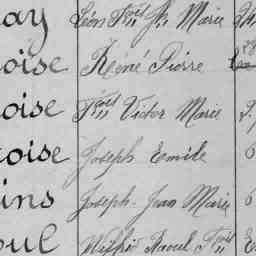 ay Léon Fçois Jh Marie
oise René Pierre
oise Fçois Victor Marie
oise Joseph Emile
ins Joseph Jean Marie
oul Wilfrid Raoul Fçois